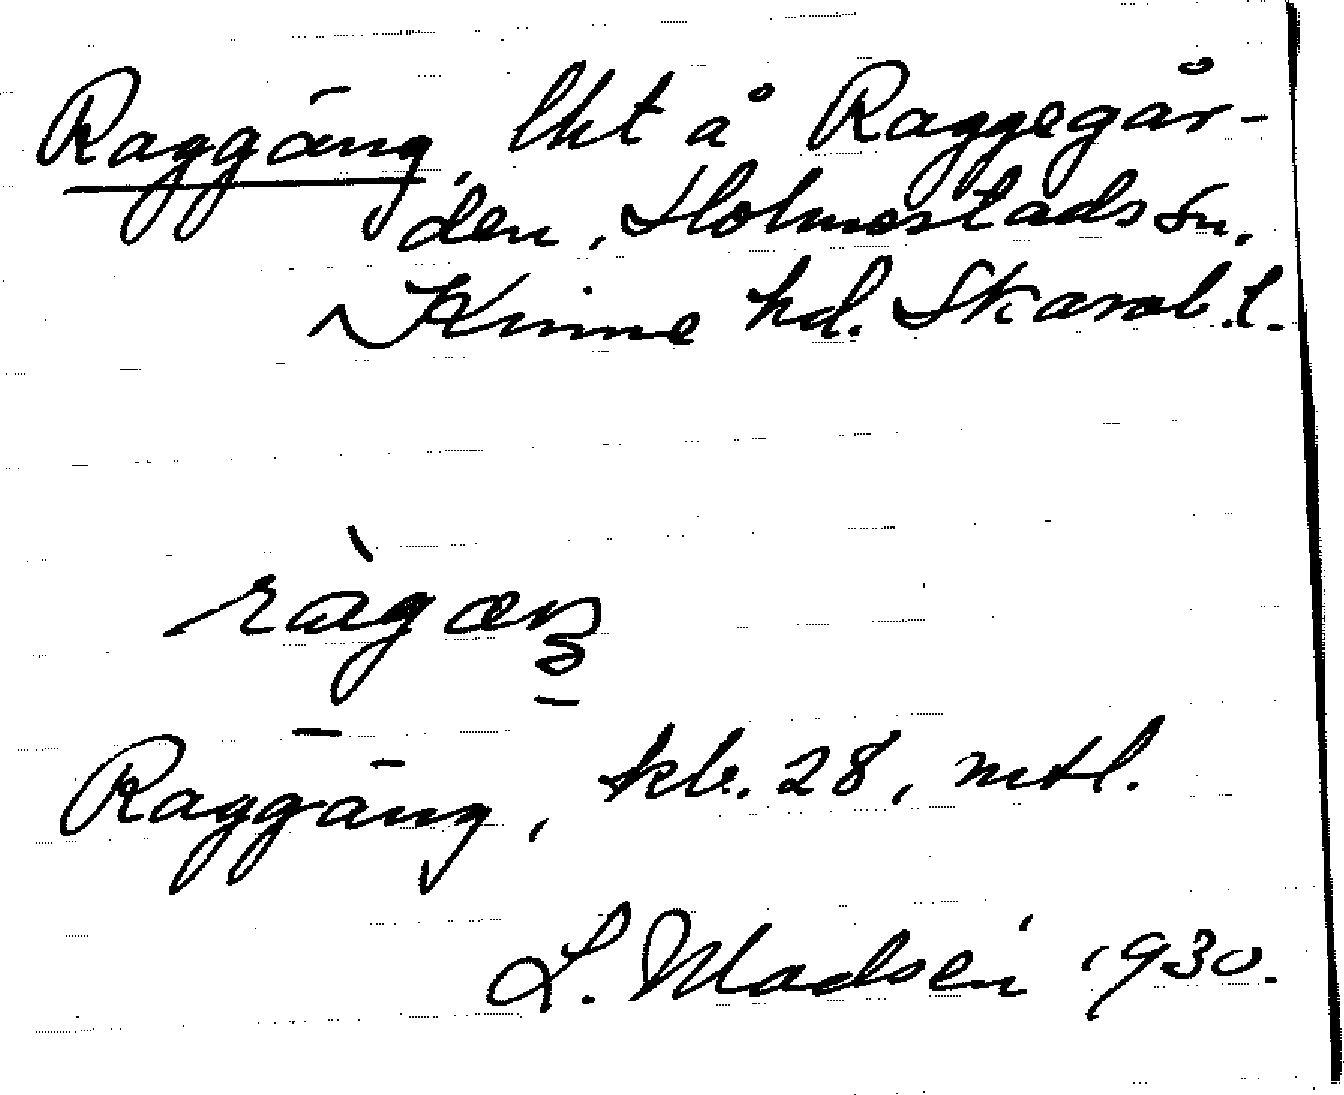 Raggäng, lkt å Raggegår-
den, Holmestads sn,
Kinne hd. Skarab.l.
ràgæŋ
Raggäng, kb. 28, mtl.
L. Madsén 1930.